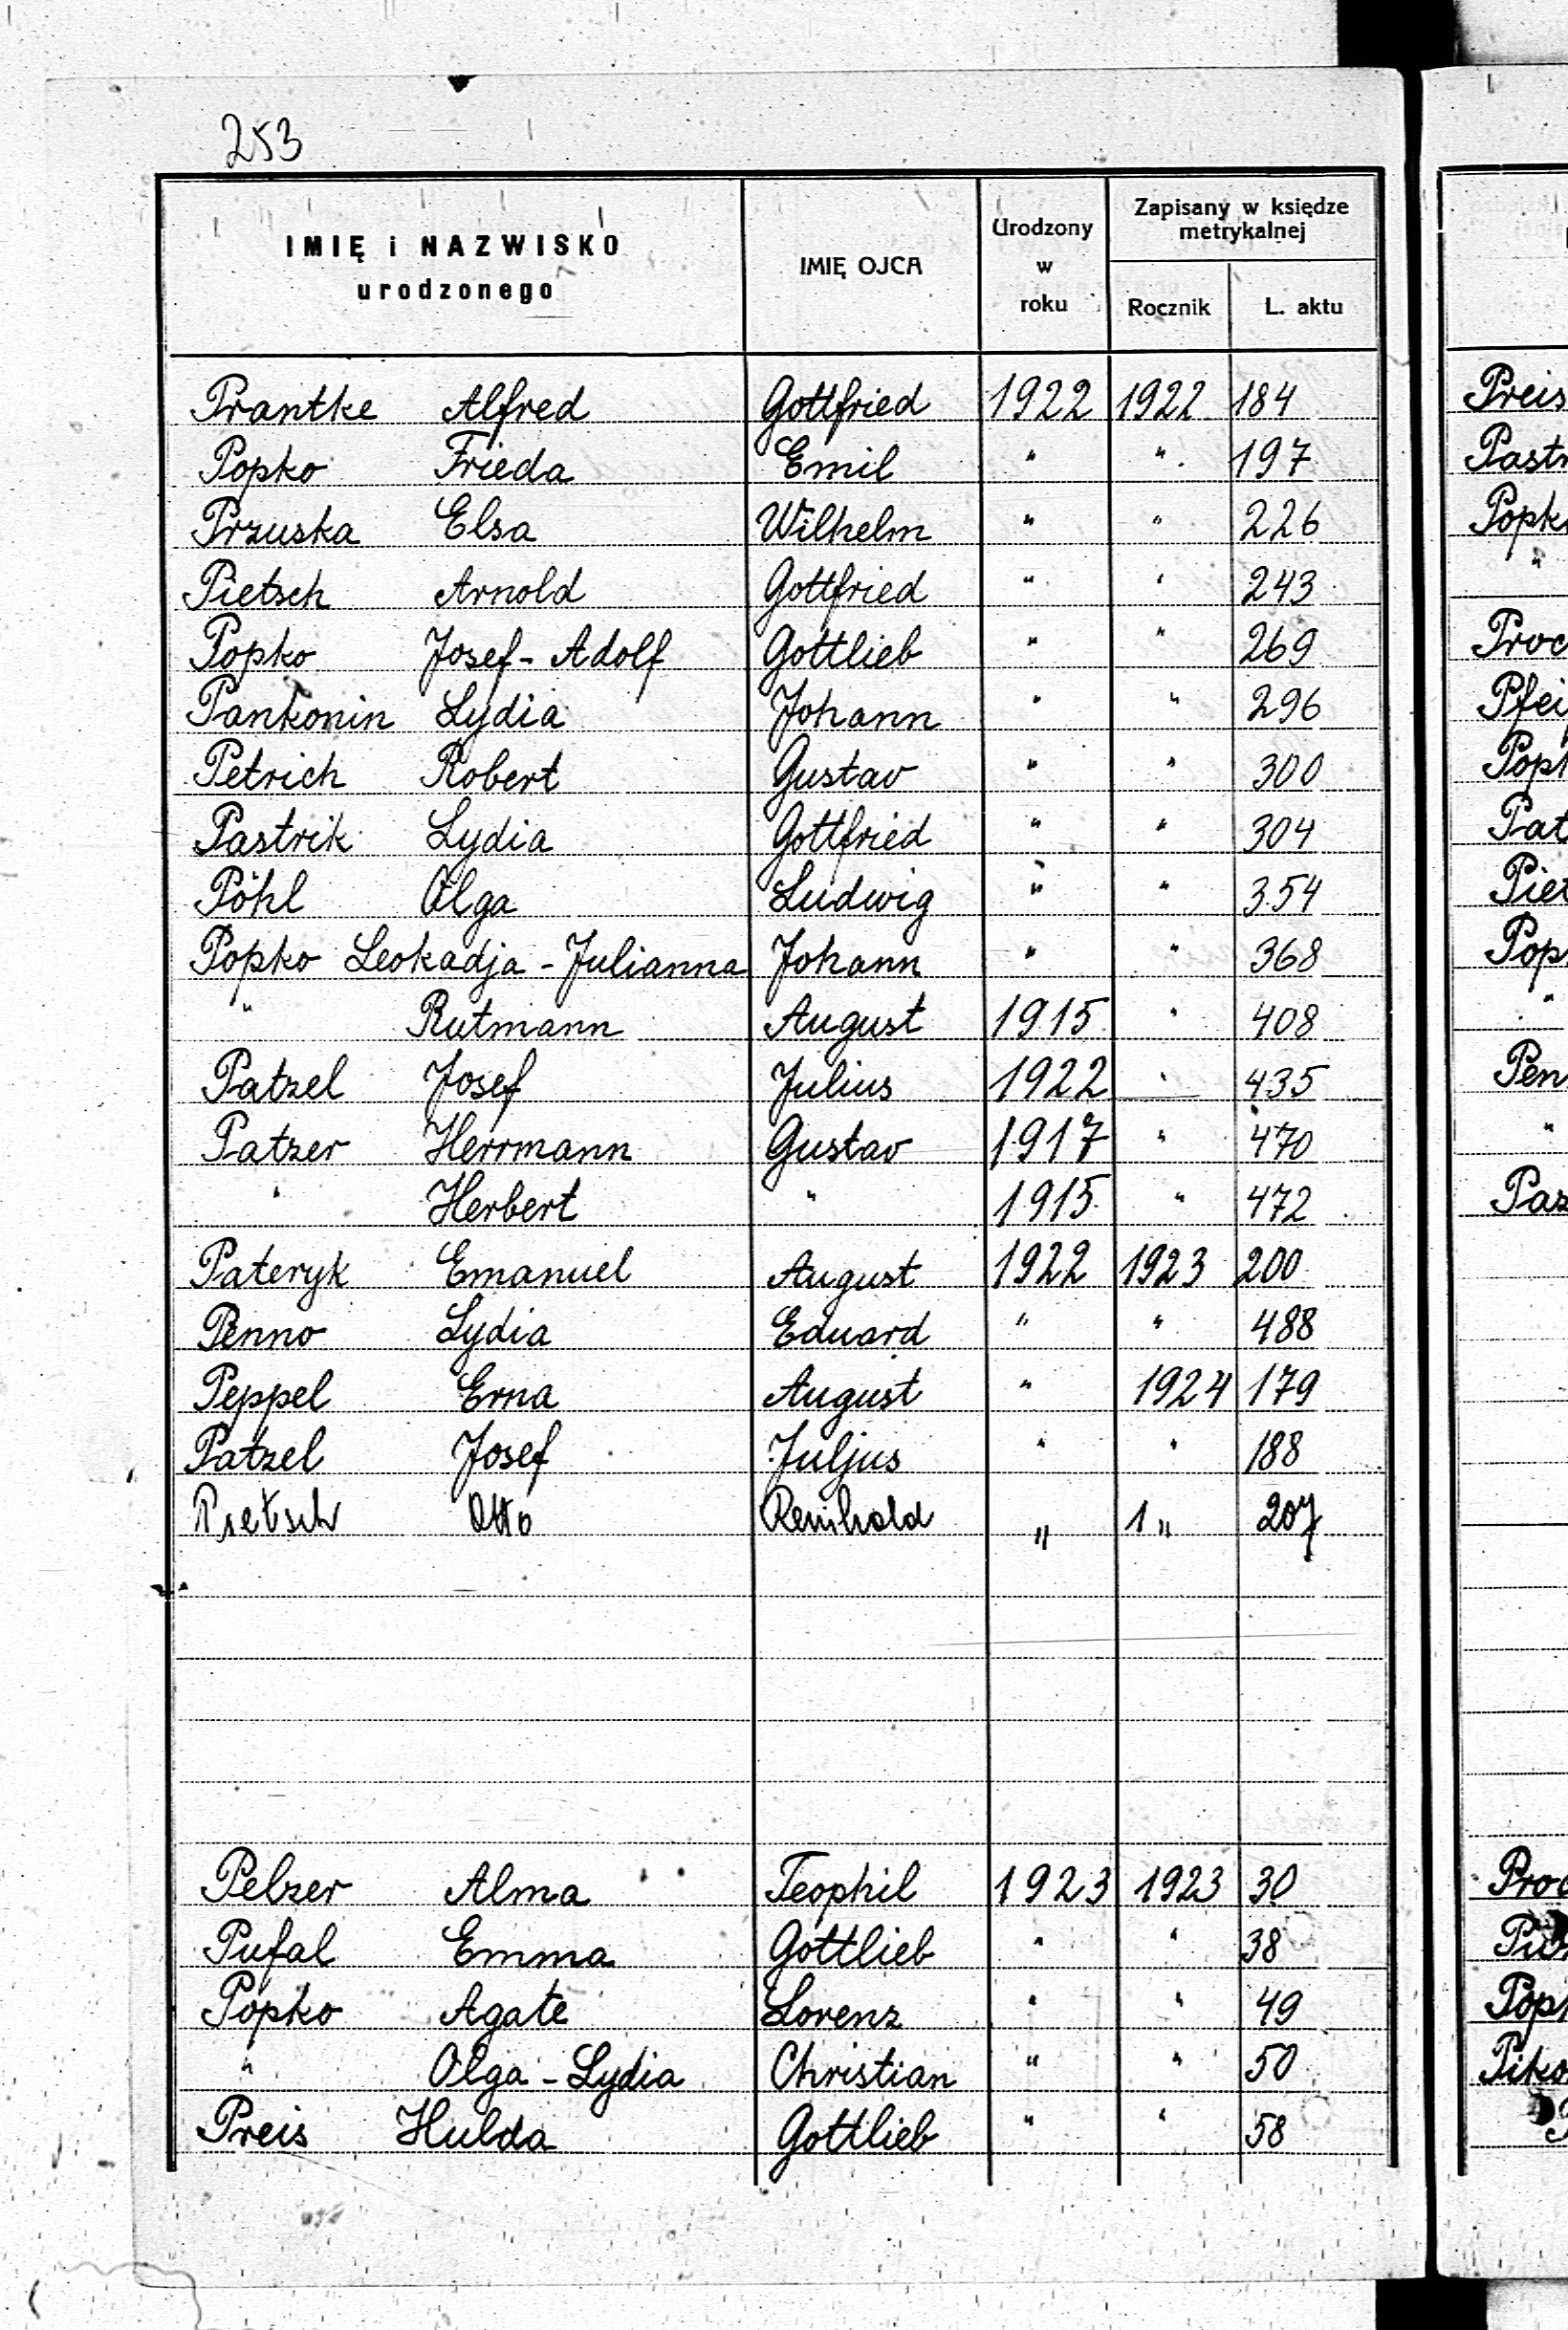 253
IMIĘ i NAZWISKO urodzonego IMIĘ OJCA Urodzony w roku Zapisany w księdze metrykalnej Rocznik L. aktu
Prantke Alfred Gottfried 1922 1922 184
Popko Frieda Emil " " 197
Przuska Elsa Wilhelm " " 226
Pietsch Arnold Gottfried " " 243
Popko Josef-Adolf Gottlieb " " 269
Pankonin Lydia Johann " " 296
Petrich Robert Gustav " " 300
Pastrik Lydia Gottfried " " 304
Pöhl Olga Ludwig " " 354
Popko Leokadja-Julianna Johann " " 368
" Rutmann August 1915 " 408
Patzel Josef Julius 1922 " 435
Patzer Herrmann Gustav 1917 " 470
" Herbert " 1915 " 472
Pateryk Emanuel August 1922 1923 200
Penno Lydia Eduard " " 488
Peppel Erna August " 1924 179
Patzel Josef Juljus " " 188
Pietsch Otto Reinhold " 1 " 207
Pelzer Alma Teophil 1923 1923 30
Pufal Emma Gottlieb " " 38
Popko Agate Lorenz " " 49
" Olga-Lydia Christian " " 50
Preis Hulda Gottlieb " " 58
Preis
Pastr
Popk
"
Proc
Pfei
Popk
Pat
Piet
Pop
"
Pen
"
Paz
Pop
Piko